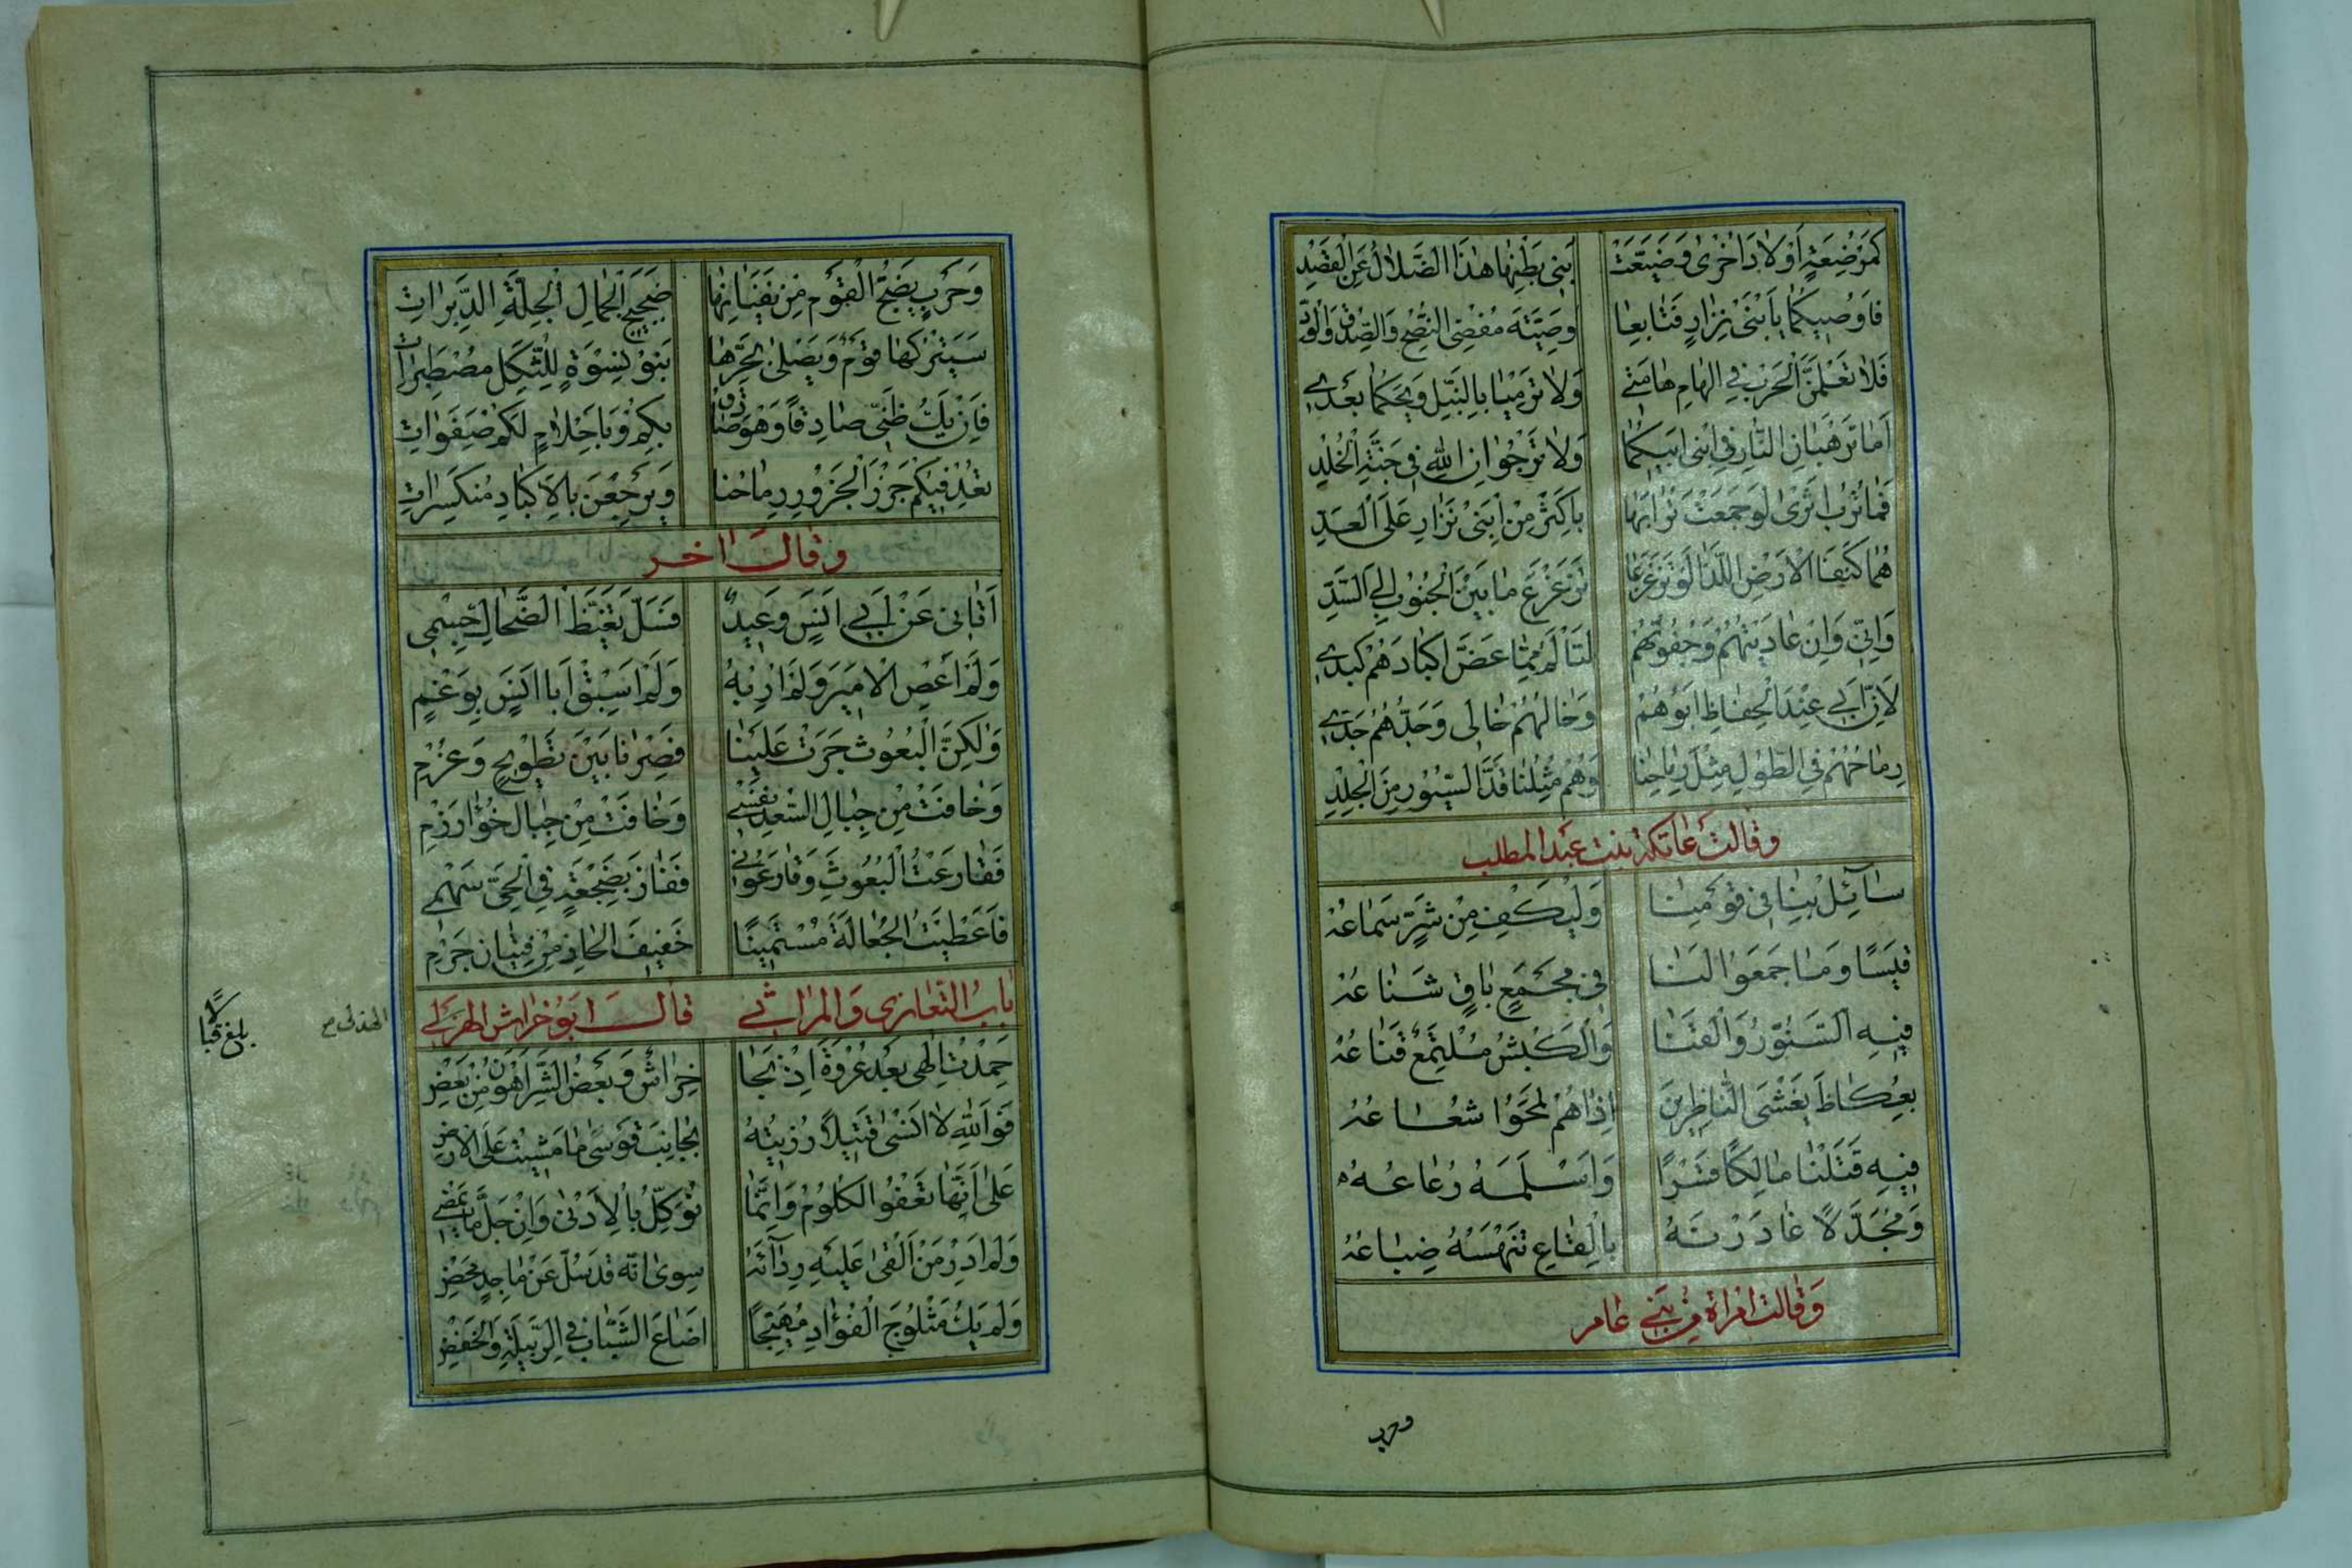 كَمُرْضِعَةٍ أَوْلَادَ أُخْرَى وَضَيَّعَتْ بَنِي بَطْنِهَا هٰذَا الضَّلَالُ عَنِ الْقَصْدِ
فَأُوصِيكُمَا يَا بْنَيْ نِزَارٍ فَتَابِعَا وَصِيَّةَ مُفْضِي النُّصْحِ وَالصِّدْقِ وَالْوُدِّ
فَلَا تَعْلَمَنَّ الْحَرْبَ فِي الْهَامِ هَامَتِي وَلَا تَرْمِيَا بِالنَّبْلِ وَيْحَكُمَا بَعْدِي
أَمَا تَرْهَبَانِ النَّارَ فِي ابْنَيْ أَبِيكُمَا وَلَا تَرْجُوَانِ اللهَ فِي جَنَّةِ الْخُلْدِ
فَمَا تُرْبُ أَثْرَى لَوْ جَمَعْتَ تُرَابَهَا بِأَكْثَرَ مِنْ ابْنَيْ نِزَارٍ عَلَى الْعَدِّ
هُمَا كَنَفَا الْأَرْضِ اللَّذَا لَوْ تَزَعْزَعَا تَزَعْزَعَ مَا بَيْنَ الْجُنُوبِ إِلَى السَّدِّ
وَإِنِّي وَإِنْ عَادَيْتُهُمْ وَجَفَوْتُهُمْ لَتَأْلَمُ مِمَّا عَضَّ أَكْبَادَهُمْ كَبِدِي
لِأَنَّ أَبِي عِنْدَ الْحِفَاظِ أَبُوهُمْ وَخَالُهُمْ خَالِي وَجَدُّهُمْ جَدِّي
رِمَاحُهُمْ فِي الطُّولِ مِثْلُ رِمَاحِنَا وَهُمْ مِثْلُنَا قَدَّ السُّيُورِ مِنَ الْجِلْدِ
وقالت عاتكة بنت عبد المطلب
سَائِلْ بِنَا فِي قَوْمِنَا وَلْيَكْفِ مِنْ شَرٍّ سَمَاعُهْ
قَيْسًا وَمَا جَمَعُوا لَنَا فِي مَجْمَعٍ بَاقٍ شَنَاعُهْ
فِيهِ السَّنَوَّرُ وَالْقَنَا وَالْكَبْشُ مُلْتَمِعٌ قِنَاعُهْ
بِعُكَاظَ يَغْشَى النَّاظِرِينَ إِذَا هُمْ لَمَحُوا شُعَاعُهْ
فِيهِ قَتَلْنَا مَالِكًا قَسْرًا وَأَسْلَمَهُ رُعَاعُهْ
وَمُجَدَّلًا غَادَرْنَهُ بِالْقَاعِ تَنْهَسُهُ ضِبَاعُهْ
وقالت امرأة من بني عامر
وحرب
وَحَرْبٍ يَضِجُّ الْقَوْمُ مِنْ نَفَيَانِهَا ضَجِيجَ الْجِمَالِ الْجِلَّةِ الدَّبِرَاتِ
سَيَتْرُكُهَا قَوْمٌ وَيَصْلَى بِحَرِّهَا بَنُو نِسْوَةٍ لِلثُّكْلِ مُصْطَبِرَاتِ
فَإِنْ يَكُ ظَنِّي صَادِقًا وَهُوَ صَادِقٌ بِكُمْ وَبِأَحْلَامٍ لَكُمْ صَفِرَاتِ
تُعَدْ فِيكُمْ جَزْرَ الْجَزُورِ رِمَاحُنَا وَيَرْجِعْنَ بِالْأَكْبَادِ مُنْكَسِرَاتِ
وقال آخر
أَتَانِي عَنْ أَبِي أَنَسٍ وَعِيدٌ فَسَلَّ تَغَيُّظُ الضَّحَّاكِ جِسْمِي
وَلَمْ أَعْصِ الْأَمِيرَ وَلَمْ أُرِبْهُ وَلَمْ أَسْبِقْ أَبَا أَنَسٍ بِوَغْمِ
وَلٰكِنَّ الْبُعُوثَ جَرَتْ عَلَيْنَا فَصِرْنَا بَيْنَ تَطْوِيحٍ وَغُرْمِ
وَخَافَتْ مِنْ جِبَالِ السُّغْدِ نَفْسِي وَخَافَتْ مِنْ جِبَالِ خُوَارَزْمِ
فَقَارَعْتُ الْبُعُوثَ وَقَارَعُونِي فَفَازَ بِضَجْعَةٍ فِي الْحَيِّ سَهْمِي
فَأَعْطَيْتُ الْجُعَالَةَ مُسْتَمِيتًا خَفِيفَ الْحَاذِ مِنْ فِتْيَانِ جَرْمِ
باب التعازي والمراثي قال ابو خراش الهزلي
الهذلي
بلغ قبالا
حَمِدْتُ إِلٰهِي بَعْدَ عُرْوَةَ إِذْ نَجَا خِرَاشٌ وَبَعْضُ الشَّرِّ أَهْوَنُ مِنْ بَعْضِ
فَوَاللهِ لَا أَنْسَى قَتِيلًا رُزِيتُهُ بِجَانِبِ قَوْسَى مَا مَشَيْتُ عَلَى الْأَرْضِ
عَلَى أَنَّهَا تَعْفُو الْكُلُومُ وَإِنَّمَا نُوَكَّلُ بِالْأَدْنَى وَإِنْ جَلَّ مَا يَمْضِي
وَلَمْ أَدْرِ مَنْ أَلْقَى عَلَيْهِ رِدَاءَهُ سِوَى أَنَّهُ قَدْ سُلَّ عَنْ مَاجِدٍ مَحْضِ
وَلَمْ يَكُ مَثْلُوجَ الْفُؤَادِ مُهَيَّجًا أَضَاعَ الشَّبَابَ فِي الرَّبِيلَةِ وَالْخَفْضِ